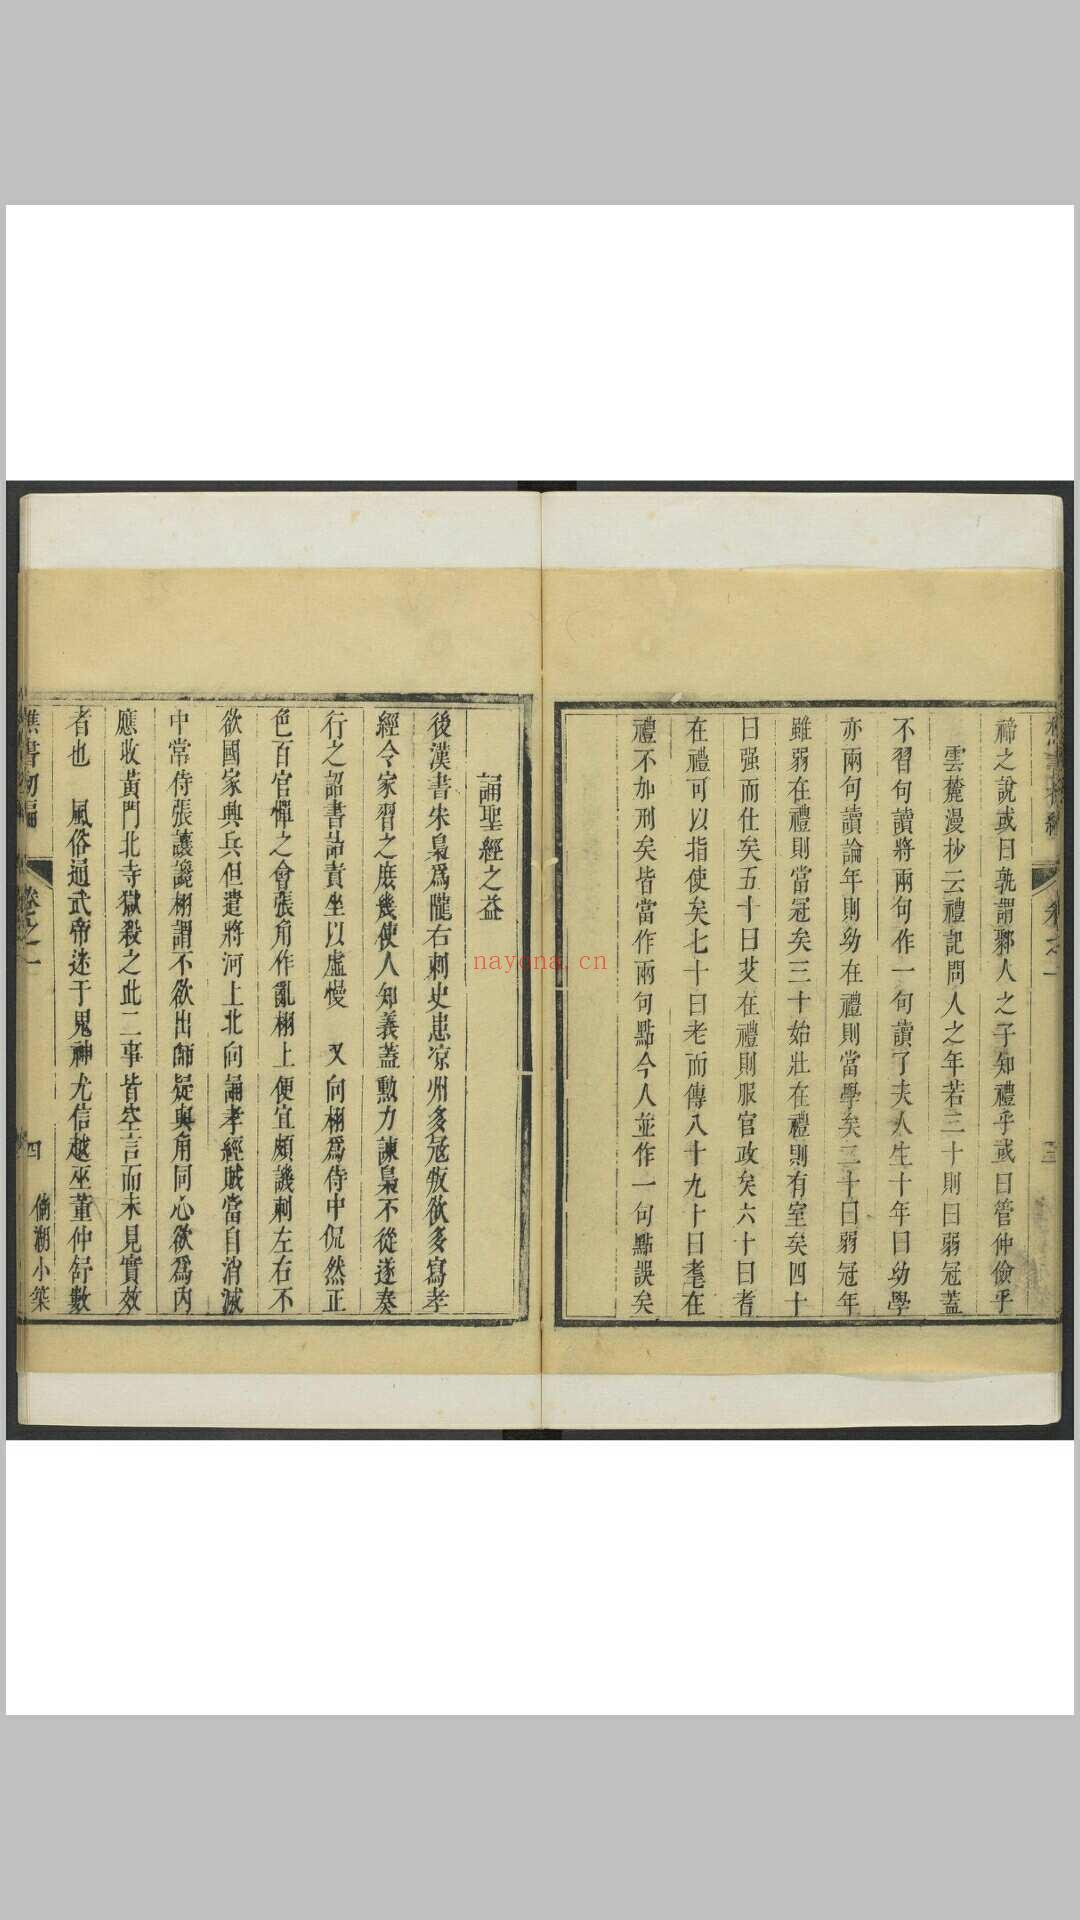 禘之說或曰孰謂鄹人之子知禮乎或曰管仲儉乎
雲麓漫抄云禮記問人之年若二十則曰弱冠蓋
不習句讀將兩句作一句讀了夫人生十年曰幼學
亦兩句讀論年則幼在禮則當學矣二十曰弱冠年
雖弱在禮則當冠矣三十始壯在禮則有室矣四十
曰强而仕矣五十曰艾在禮則服官政矣六十曰耆
在禮可以指使矣七十曰老而傳八十九十曰耄在
禮不加刑矣皆當作兩句點今人並作一句點誤矣
誦聖經之益
後漢書朱梟爲隴右刺史患凉州多冦叛欲多寫孝
經令家習之庶幾使人知義蓋勲力諫梟不從遂奏
行之詔書詰責坐以虛慢 又向栩爲侍中侃然正
色百官憚之會張角作亂栩上便宜頗譏刺左右不
欲國家興兵但遣將河上北向誦孝經賊當自消滅
中常侍張讓讒栩謂不欲出師疑與角同心欲爲內
應收黃門北寺獄殺之此二事皆空言而未見實效
者也 風俗通武帝迷于鬼神尤信越巫董仲舒數
樵書初編
卷之一
四
倘湖小築
nayona.cn